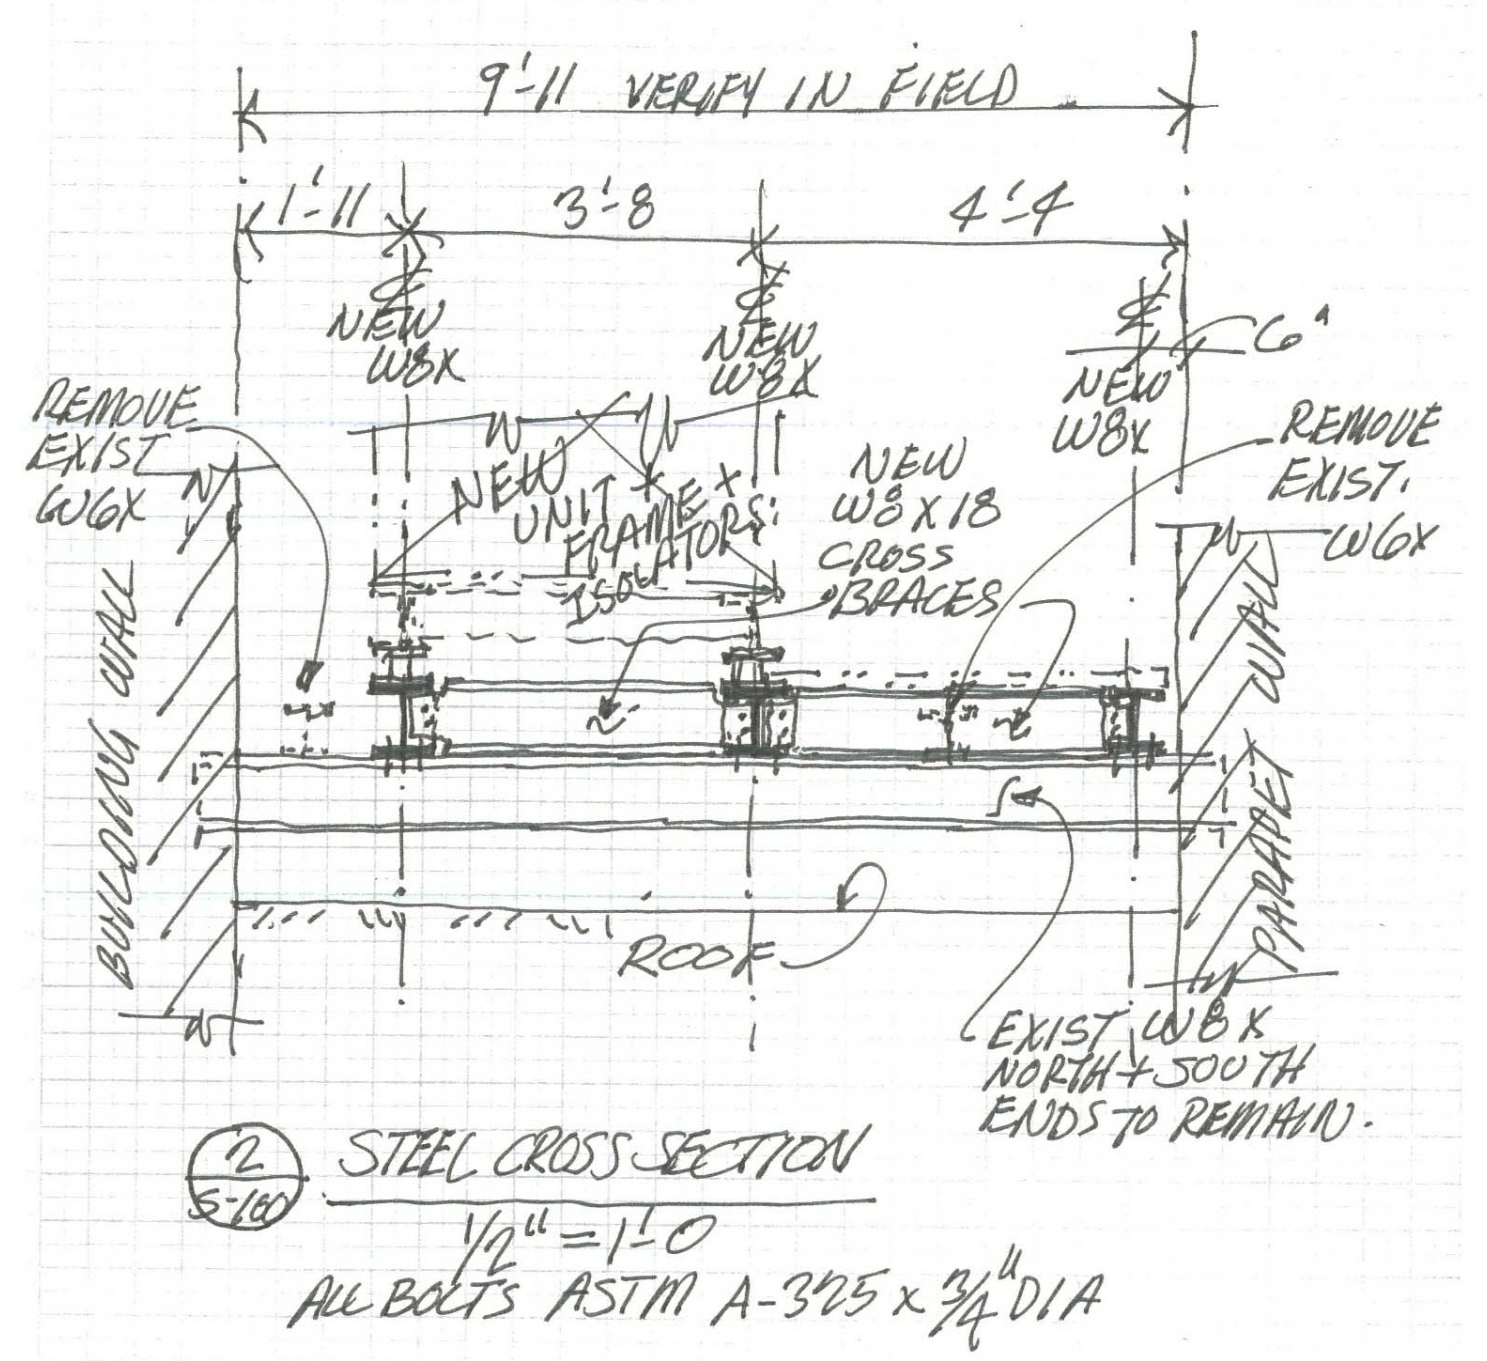 9'-11 VERIFY IN FIELD
1'-11
3'-8
4'-4
℄
NEW
W8X
℄
NEW
W8X
℄
6"
NEW
W8X
REMOVE
EXIST
W6X
REMOVE
EXIST.
W6X
NEW
UNIT +
FRAME +
ISOLATORS
NEW
W8X18
CROSS
BRACES
BUILDING WALL
PARAPET WALL
ROOF
EXIST W8X
NORTH + SOUTH
ENDS TO REMAIN.
2
S-160
STEEL CROSS SECTION
1/2" = 1'-0
ALL BOLTS ASTM A-325 x 3/4" DIA